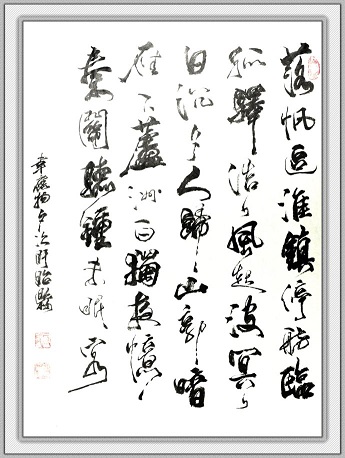 落帆逗淮鎮停舫臨
孤驛浩々風起波冥々
日沉夕人歸山郭暗
雁下蘆洲白獨夜憶
秦關聽鐘未眠客
韋應物夕次盱眙縣